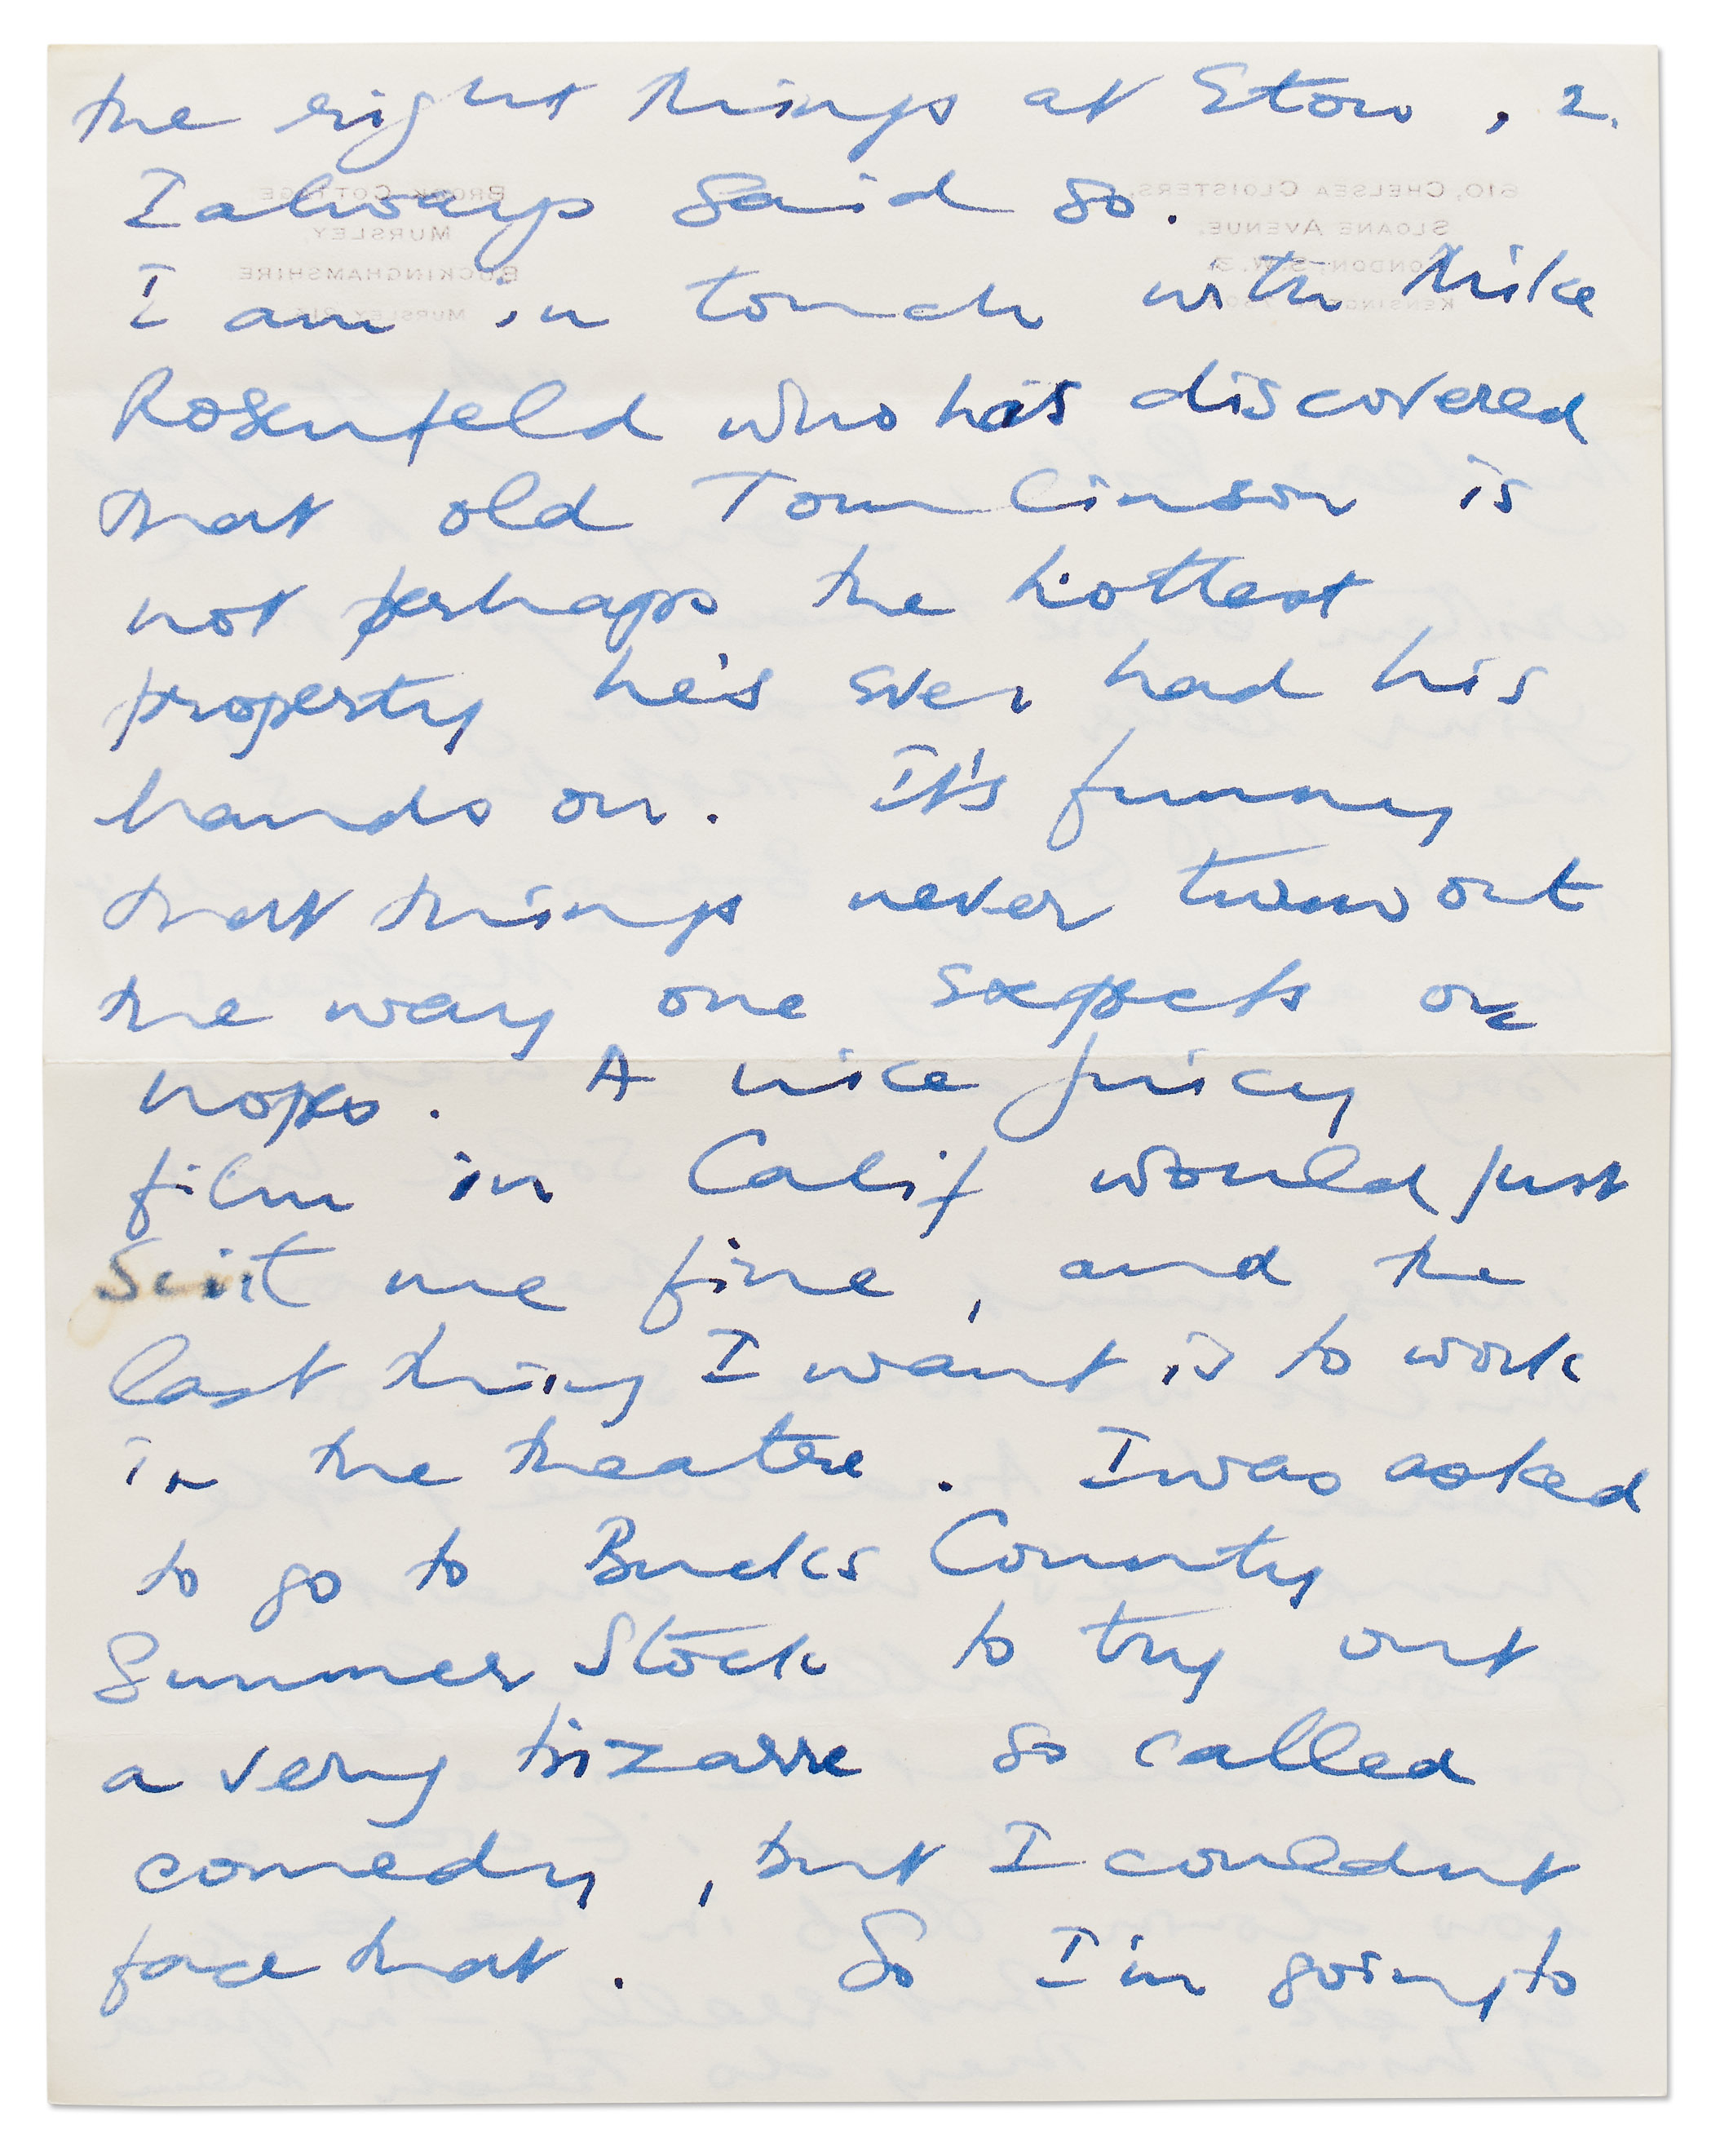 the right things at Eton , 2.
I always said so.
I am in touch with Mike
Rosenfeld who has discovered
that old Tomlinson is
not perhaps the hottest
property he's ever had his
hands on. It's funny
that things never turn out
the way one expects or
hopes. A nice juicy
film in Calif would just
suit me fine, and the
last thing I want is to work
in the theatre. I was asked
to go to Bucks County
Summer Stock to try out
a very bizarre so called
comedy, but I couldnt
face that. So I'm going to
610, CHELSEA CLOISTERS,
SLOANE AVENUE,
LONDON, S.W.3.
BROOK COTTAGE
MURSLEY,
BUCKINGHAMSHIRE